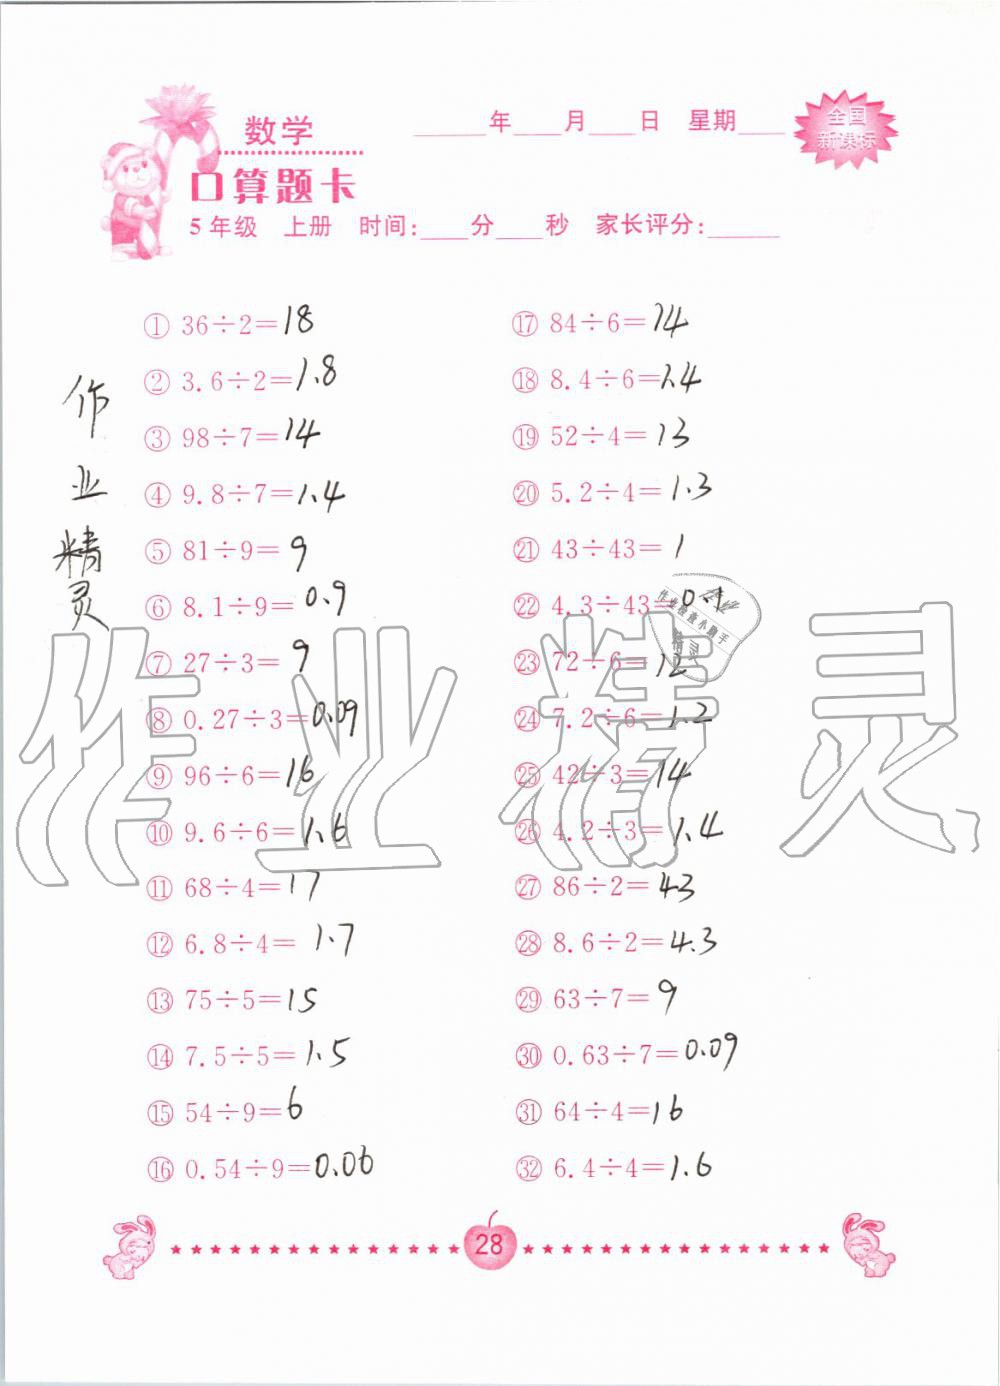 数学
____年____月____日 星期____
全国
新课标
口算题卡
5年级 上册 时间:____分____秒 家长评分:____
① 36÷2=18
② 3.6÷2=1.8
③ 98÷7=14
④ 9.8÷7=1.4
⑤ 81÷9=9
⑥ 8.1÷9=0.9
⑦ 27÷3=9
⑧ 0.27÷3=0.09
⑨ 96÷6=16
⑩ 9.6÷6=1.6
⑪ 68÷4=17
⑫ 6.8÷4=1.7
⑬ 75÷5=15
⑭ 7.5÷5=1.5
⑮ 54÷9=6
⑯ 0.54÷9=0.06
⑰ 84÷6=14
⑱ 8.4÷6=1.4
⑲ 52÷4=13
⑳ 5.2÷4=1.3
㉑ 43÷43=1
㉒ 4.3÷43=0.1
㉓ 72÷6=12
㉔ 7.2÷6=1.2
㉕ 42÷3=14
㉖ 4.2÷3=1.4
㉗ 86÷2=43
㉘ 8.6÷2=4.3
㉙ 63÷7=9
㉚ 0.63÷7=0.09
㉛ 64÷4=16
㉜ 6.4÷4=1.6
作业精灵
作业精灵
28